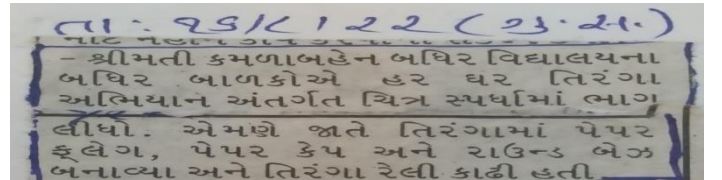 તા : ૧૬/૮/૨૨ (ગુ.સ.)
- શ્રીમતી કમળાબહેન બધિર વિદ્યાલયના
બધિર બાળકોએ હર ઘર તિરંગા
અભિયાન અંતર્ગત ચિત્ર સ્પર્ધામાં ભાગ
લીધો. એમણે જાતે તિરંગામાં પેપર
ફ્લેગ, પેપર કેપ અને રાઉન્ડ બેઝ
બનાવ્યા અને તિરંગા રેલી કાઢી હતી.